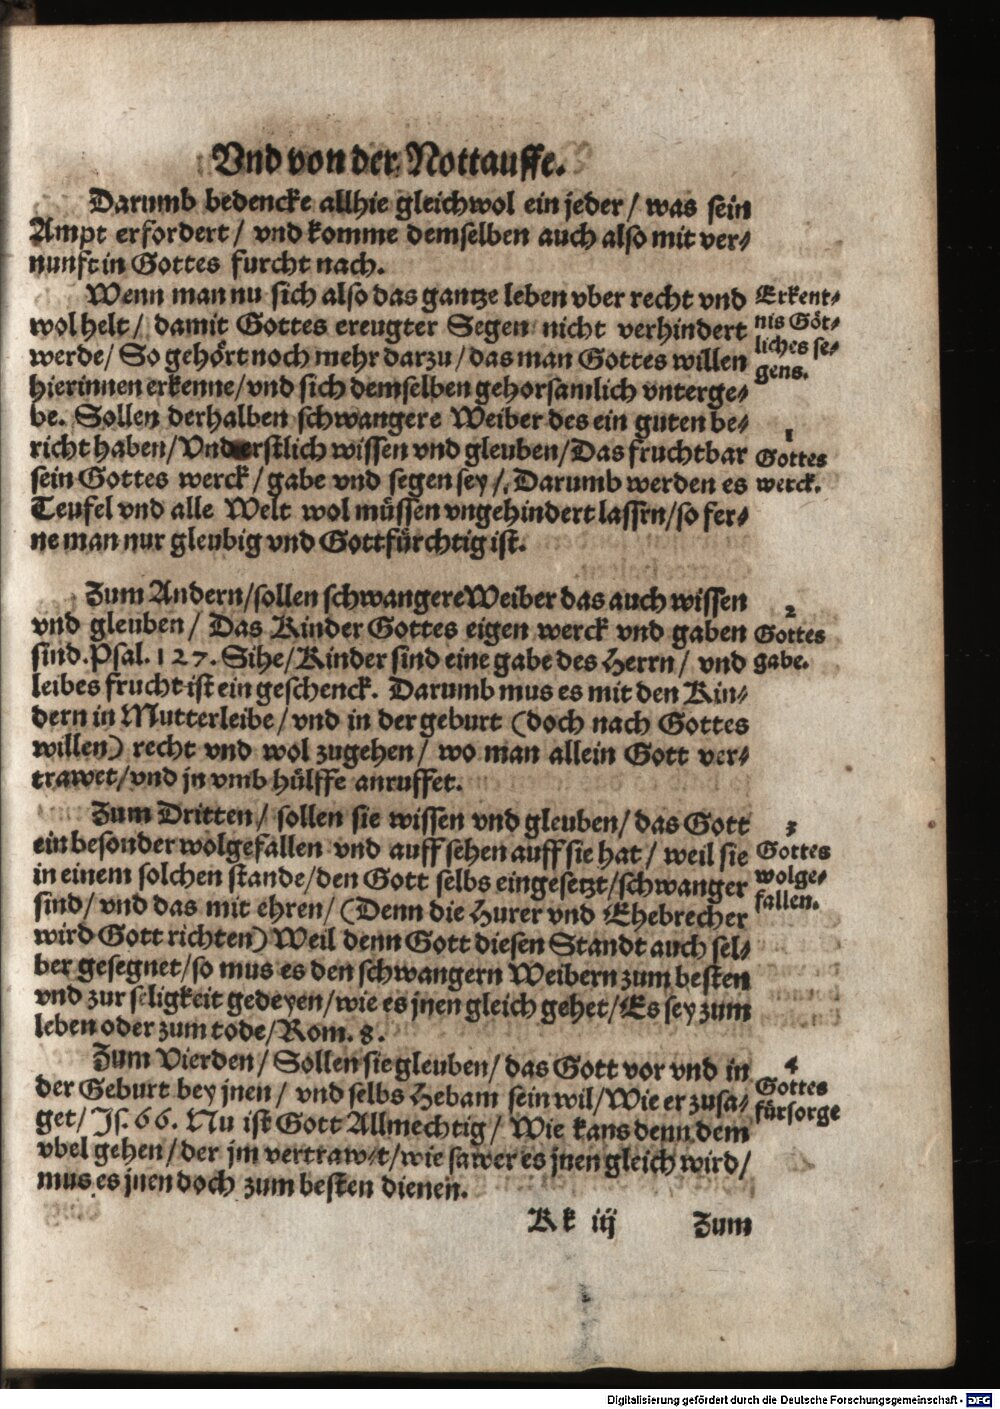 Vnd von der Nottauffe.
Darumb bedencke allhie gleichwol ein jeder / was sein
Ampt erfordert / vnd komme demselben auch also mit ver-
nunfft in Gottes furcht nach.
Wenn man nu sich also das gantze leben vber recht vnd
wol helt / damit Gottes ereugter Segen nicht verhindert
werde / So gehört noch mehr darzu / das man Gottes willen
hierinnen erkenne / vnd sich demselben gehorsamlich vnterge-
be. Sollen derhalben schwangere Weiber des ein guten be-
richt haben / Vnd erstlich wissen vnd gleuben / Das fruchtbar
sein Gottes werck / gabe vnd segen sey / Darumb werden es
Teufel vnd alle Welt wol müssen vngehindert lassen / so fer-
ne man nur gleubig vnd Gottfürchtig ist.
Erkent-
nis Göt-
liches se-
gens.
1
Gottes
werck.
Zum Andern / sollen schwangere Weiber das auch wissen
vnd gleuben / Das Kinder Gottes eigen werck vnd gaben
sind. Psal. 127. Sihe / Kinder sind eine gabe des Herrn / vnd
leibes frucht ist ein geschenck. Darumb mus es mit den Kin-
dern in Mutterleibe / vnd in der geburt (doch nach Gottes
willen) recht vnd wol zugehen / wo man allein Gott ver-
trawet / vnd jn vmb hülffe anruffet.
2
Gottes
gabe.
Zum Dritten / sollen sie wissen vnd gleuben / das Gott
ein besonder wolgefallen vnd auffsehen auff sie hat / weil sie
in einem solchen stande / den Gott selbs eingesetzt / schwanger
sind / vnd das mit ehren / (Denn die Hurer vnd Ehebrecher
wird Gott richten) Weil denn Gott diesen Standt auch sel-
ber gesegnet / so mus es den schwangern Weibern zum besten
vnd zur seligkeit gedeyen / wie es jnen gleich gehet / Es sey zum
leben oder zum tode / Rom. 8.
3
Gottes
wolge-
fallen.
Zum Vierden / Sollen sie gleuben / das Gott vor vnd in
der Geburt bey jnen / vnd selbs Hebam sein wil / Wie er zusa-
get / Js. 66. Nu ist Gott Allmechtig / Wie kans denn dem
vbel gehen / der jm vertrawet / wie sawer es jnen gleich wird /
mus es jnen doch zum besten dienen.
4
Gottes
fürsorge
Kk iij Zum
Digitalisierung gefördert durch die Deutsche Forschungsgemeinschaft - DFG